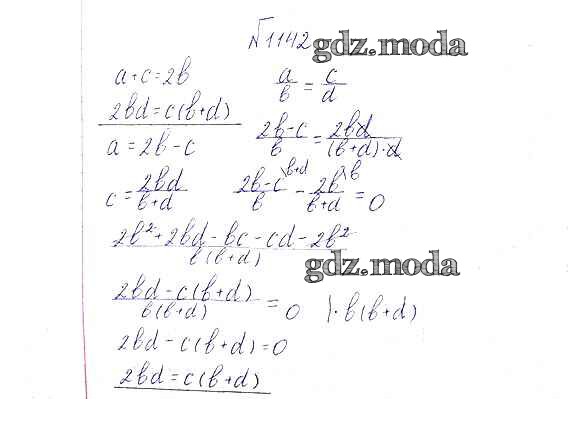 №1142 gdz.moda
a+c=2b a/b = c/d
2bd=c(b+d)
a=2b-c (2b-c)/b = 2bd/((b+d)·d)
c= 2bd/(b+d) (2b-c)/b \b+d - 2b/(b+d) \b = 0
(2b²+2bd-bc-cd-2b²)/(b(b+d))
gdz.moda
(2bd-c(b+d))/(b(b+d)) = 0 |·b(b+d)
2bd-c(b+d)=0
2bd=c(b+d)